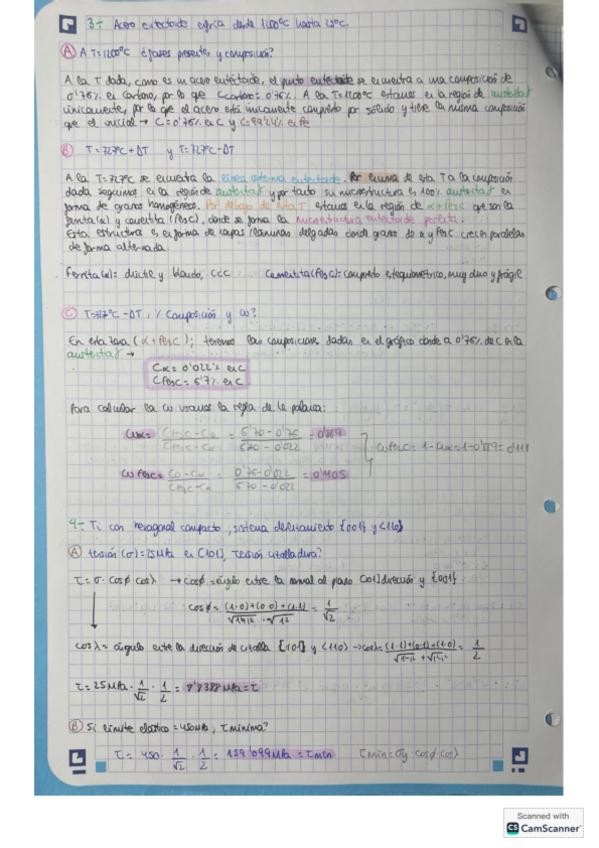 3- Acero eutectoide enfría desde 1200ºC hasta 25ºC.
(A) A T=1200ºC ¿fases presentes y composición?
A la T dada, como es un acero eutectoide, el punto eutectoide se encuentra a una composición de
0'76% en carbono, por lo que Ccarbono= 0'76%. A la T=1200ºC estamos en la región de austenita γ
únicamente, por lo que el acero está únicamente compuesto por sólido γ tiene la misma composición
que el inicial → C=0'76% en C y C=99'24% en Fe
(B) T=727ºC+DT y T=727ºC-DT
A la T=727ºC se encuentra la línea isoterma eutectoide. Por encima de esta T a la composición
dada seguimos en la región de austenita γ y por tanto su microestructura es 100% austenita γ en
forma de granos homogéneos. Por debajo de esta T estamos en la región de α+Fe3C que son la
ferrita(α) y cementita (Fe3C), donde se forma la microestructura eutectoide perlita.
Esta estructura es en forma de capas/láminas delgadas donde granos de α y Fe3C crecen paralelas
de forma alternada.
Ferrita(α)= dúctil y blando, ccc Cementita(Fe3C)=compuesto estequiométrico, muy duro y frágil
(C) T=727ºC-DT, ¿% Composición y ω?
En esta zona (α+Fe3C); tenemos las composiciones dadas en el gráfico donde a 0'76% de C en la
austenita γ →
Cα = 0'022% en C
CFe3C = 6'7% en C
Para calcular la ω usamos la regla de la palanca:
ωα= = 6'70-0'76 / 6'70-0'022 = 0'889
ωFe3C= C0-Cα / CFe3C-Cα = 0'76-0'022 / 6'70-0'022 = 0'1105
ωFe3C = 1-ωα=1-0'889=0'111
4- Ti con hexagonal compacto, sistema deslizamiento {001} y <110>
(A) tensión (σ)=25MPa en [101], tensión cizalladura?
τ=σ·cosφ cosλ → cosφ=ángulo entre la normal al plano [101]dirección y {001}
cosφ= (1·0)+(0·0)+(1·1) / √1²+1² · √1² = 1/√2
cosλ= ángulo entre la dirección de cizalla [101] y <110> →cosλ= (1·1)+(0·1)+(1·0) / √1²+1² + √1²+1² = 1/2
τ=25MPa · 1/√2 · 1/2 = 8'8388 MPa=τ
(B) Si límite elástico=450MPa, τ mínima?
τ= 450 · 1/√2 · 1/2 = 159'099MPa = τmin τmin=σy cosφ·cosλ
Scanned with
CS CamScanner